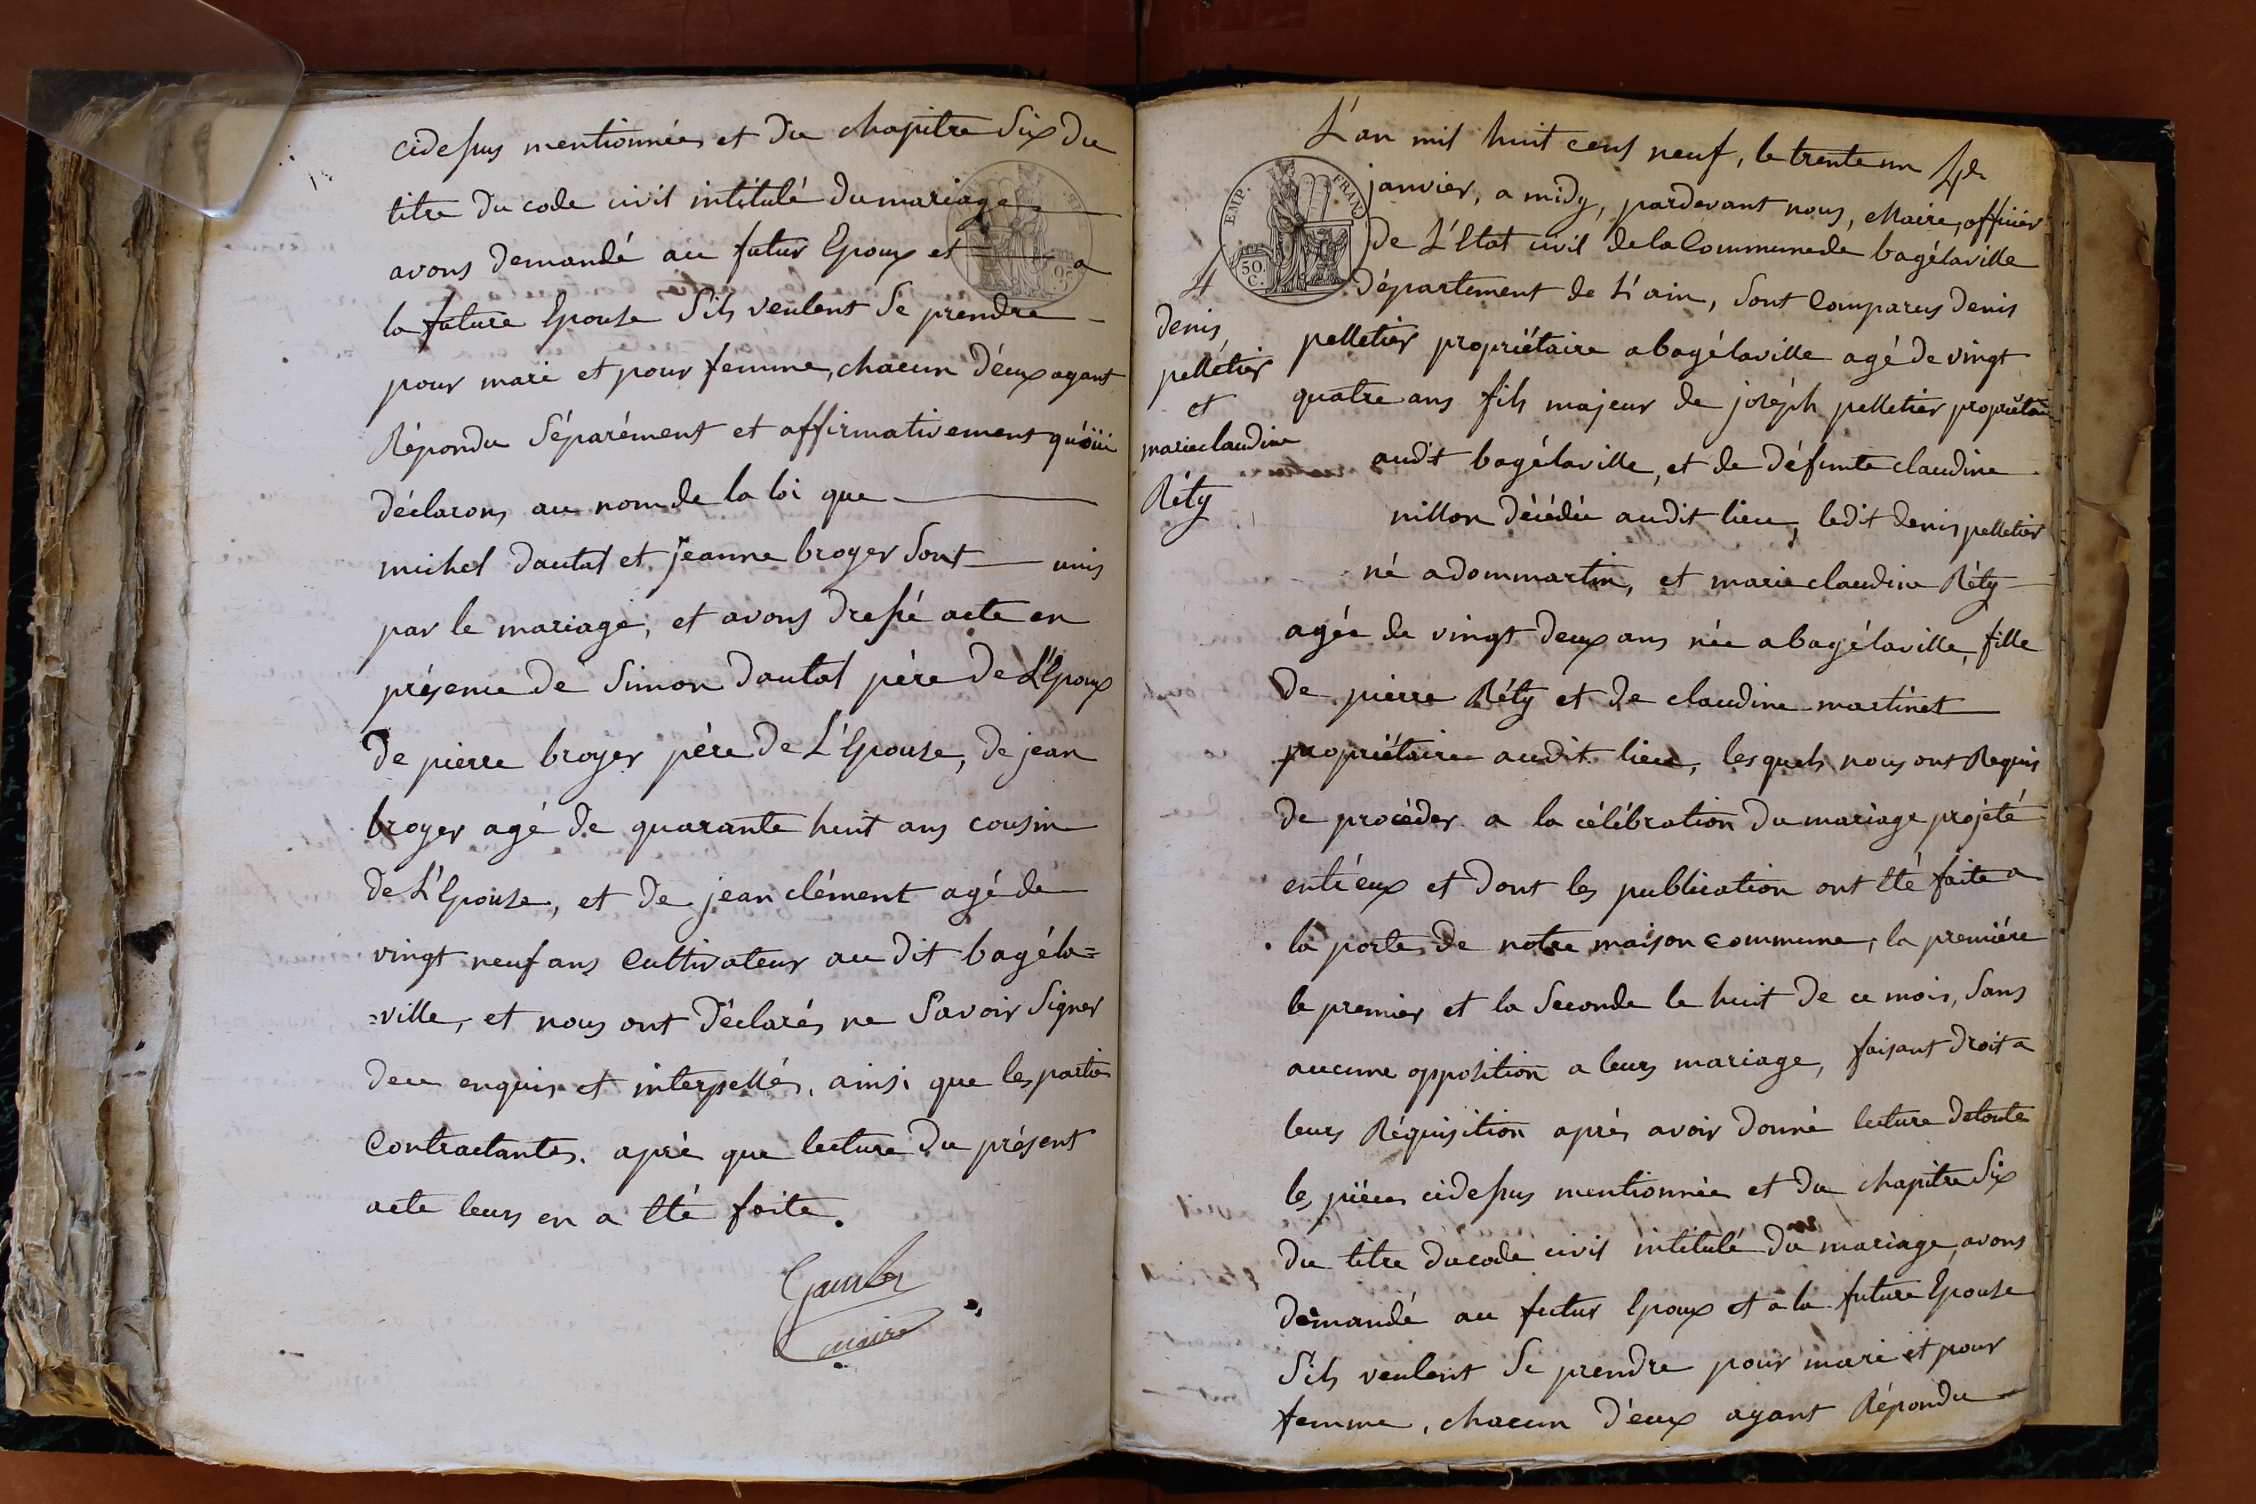 cidessus mentionnées et du chapitre Six du
titre du code civil intitulé du mariage
avons demandé au futur Epoux et a
la future Epouse S'ils veulent Se prendre
pour mari et pour femme, chacun d'eux ayant
Répondu Séparément et affirmativement qu'oüi
déclarons au nom de la loi que
michel dautal et jeanne broyer Sont unis
par le mariage, et avons dressé acte en
présence de Simon dautal père de L'Epoux
de pierre broyer père de L'Epouse, de jean
broyer agé de quarante huit ans cousin
de L'Epouse, et de jean clément agé de
vingt neuf ans Cultivateur au dit bagéla=
=ville, et nous ont déclarés ne Savoir Signer
de ce enquis et interpellés, ainsi que les parties
Contractantes. après que lecture du présent
acte leurs en a Eté faite.
maire
L'an mil huit cent neuf, le trente un
janvier, a midy, pardevant nous, Maire, officier
de L'Etat civil de la Commune de bagélaville
département de L'ain, Sont Comparus denis
pelletier propriétaire a bagélaville agé de vingt
quatre ans fils majeur de joséph pelletier propriétaire
audit bagélaville, et de défunte claudine
nillon décédée audit lieu, ledit denis pelletier
né a dommartin, et marie claudine Réty
agée de vingt deux ans née a bagélaville, fille
de pierre Réty et de claudine martinet
propriétaire audit lieu, lesquels nous ont Requis
de procéder a la célébration du mariage projeté
entr'eux et dont les publication ont Eté faite a
la porte de notre maison commune, la première
le premier et la Seconde le huit de ce mois, Sans
aucune opposition a leurs mariage, faisant droit a
leurs Réquisition après avoir donné lecture de toute
les pièces cidessus mentionnées et du chapitre Six
du titre du code civil intitulé du mariage, avons
demandé au futur Epoux et a la future Epouse
S'ils veulent Se prendre pour mari et pour
femme, chacun d'eux ayant Répondu
EMP. FRAN.
50.
C.
4
denis
pelletier
et
marie claudine
Réty